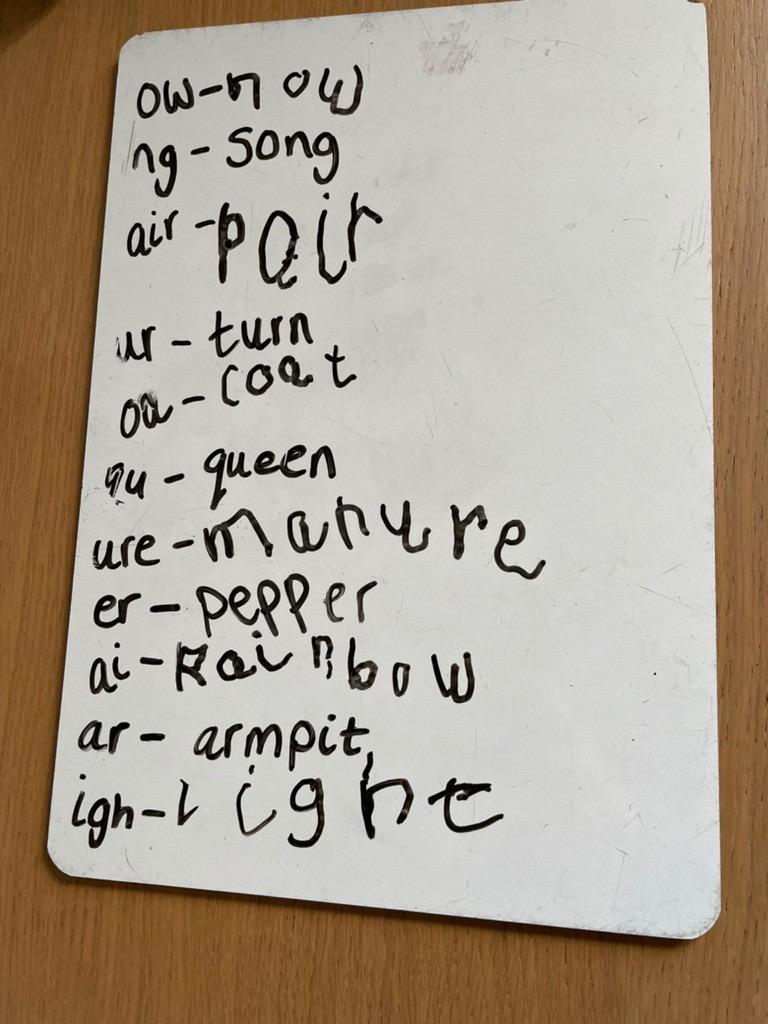 ow-now
ng - song
air - pair
ur - turn
oa - coat
qu - queen
ure - manure
er - pepper
ai - Rainbow
ar - armpit
igh - light